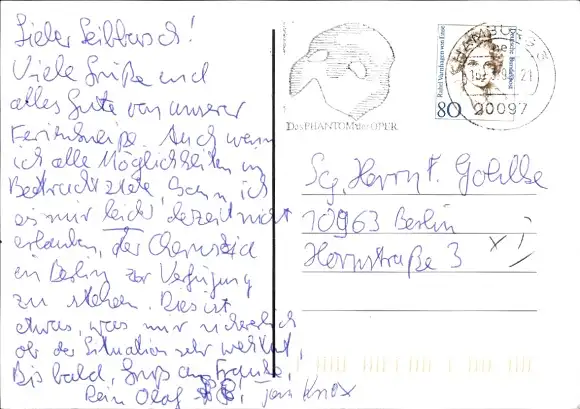 Lieber Seibbusch!
Viele Grüße und
alles Gute von unserer
Ferienkneipe. Auch wenn
ich alle Möglichkeiten in
Betracht ziehe, kann ich
es mir leider derzeit nicht
erlauben, der
in Berlin zur Verfügung
zu stehen. Dies ist
etwas, was mir sicherlich
ob der Situation sehr
Bis bald, Gruß an
Dein Olaf
Das PHANTOM der OPER
Rahel Varnhagen von Ense
Deutsche Bundespost
80
HAMBURG
20097
Sg. Herrn F. Gohlke
10963 Berlin
Hornstraße 3